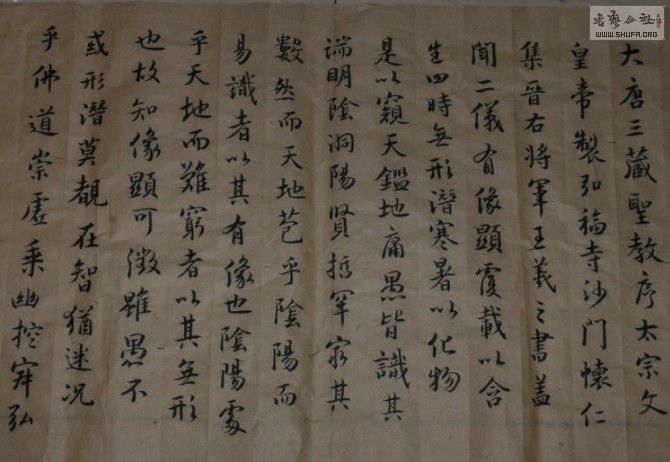 大唐三藏聖教序太宗文
皇帝製弘福寺沙門懷仁
集晉右將軍王羲之書蓋
聞二儀有像顯覆載以含
生四時無形潛寒暑以化物
是以窺天鑑地庸愚皆識其
端明陰洞陽賢哲罕窮其
數然而天地苞乎陰陽而
易識者以其有像也陰陽處
乎天地而難窮者以其無形
也故知像顯可徵雖愚不
惑形潛莫覩在智猶迷况
乎佛道崇虛乘幽控寂弘
書藝公社
WWW.SHUFA.ORG